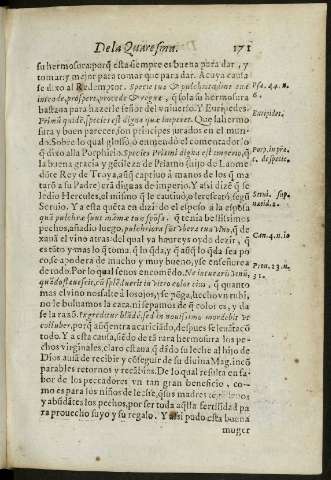 De la Quaresma. 171
su hermosura: porq̃ esta siempre es buena para dar, y
tomar: y mejor para tomar que para dar. A cuya causa
se dixo al Redemptor. Specie tua & pulchritudine tua
intende, prospere, procede & regna, q̃ sola su hermosura
bastaua para hazerle señor del vniuerso. Y Euripedes.
Prima quidẽ, species est digna que imperet. Que la hermo
sura y buen parecer, son principes jurados en el mun-
do. Sobre lo qual glossò, o enmendò el comentador lo
q̃ dixo alla Porphirio. Species Priami digna est imperio, q̃
la buena gracia y gẽtileza de Priamo hijo de Laome
dõte Rey de Troya, aũq̃ captiuo à manos de los q̃ ma
tarõ a su Padre, erà digna de imperio. Y assi dizẽ q̃ se
lo dio Hercules, el mismo q̃ le cautiuò, lo
Seruio. Y a esta quẽta en dezir de el esposo à la esposa
quã pulchra sunt mammæ tuæ sponsa. q̃ tenia bellissimos
pechos, añadio luego, pulchriora sũt vbera tua vino, q̃ de
xauã el vino atras del qual ya haureys oydo dezir, q̃
es esto y mas lo de dentro. q̃ lo q̃ da, y q̃ aũq̃ lo q̃ da sea po
co, se apodera de mucho y muy bueno, y se enseñorea
de todo. Por lo qual se nos encomẽdo. Ne intuearis vinũ,
quãdo flauescit, cũ splẽduerit in vitro color eius, q̃ quanto
mas el vino nos salte à los ojos, y se põga, hecho vn rubi,
no le boluamos la cara, ni sepamos de q̃ color es, y da
se la razõ. Ingreditur blãdè, sed in nouissimo mordebit vt
colluber, porq̃ aũ entra acariciãdo, despues se leuãta cõ
todo. Y a esta causa, siẽdo de tã rara hermosura los pe-
chos virginales, claro esta que dãdo su leche al hijo de
Dios auiã de recibir y cõseguir de su diuina Mag. incõ
parables retornos y recãbios. De lo qual resulta en fa-
bor de los peccadores vn tan gran beneficio, co-
mo es para los niños de leche, q̃ sus madres
y abũdãtes los pechos, por ser toda aq̃lla fertilidad pa
ra prouecho suyo y su regalo. Y assi pudo esta buena
muger
Psa. 44. n.
6.
Euripides.
Porp. in præ.
Serui. sup.
Can. 4. n. 10
Prou. 23. n.
31.